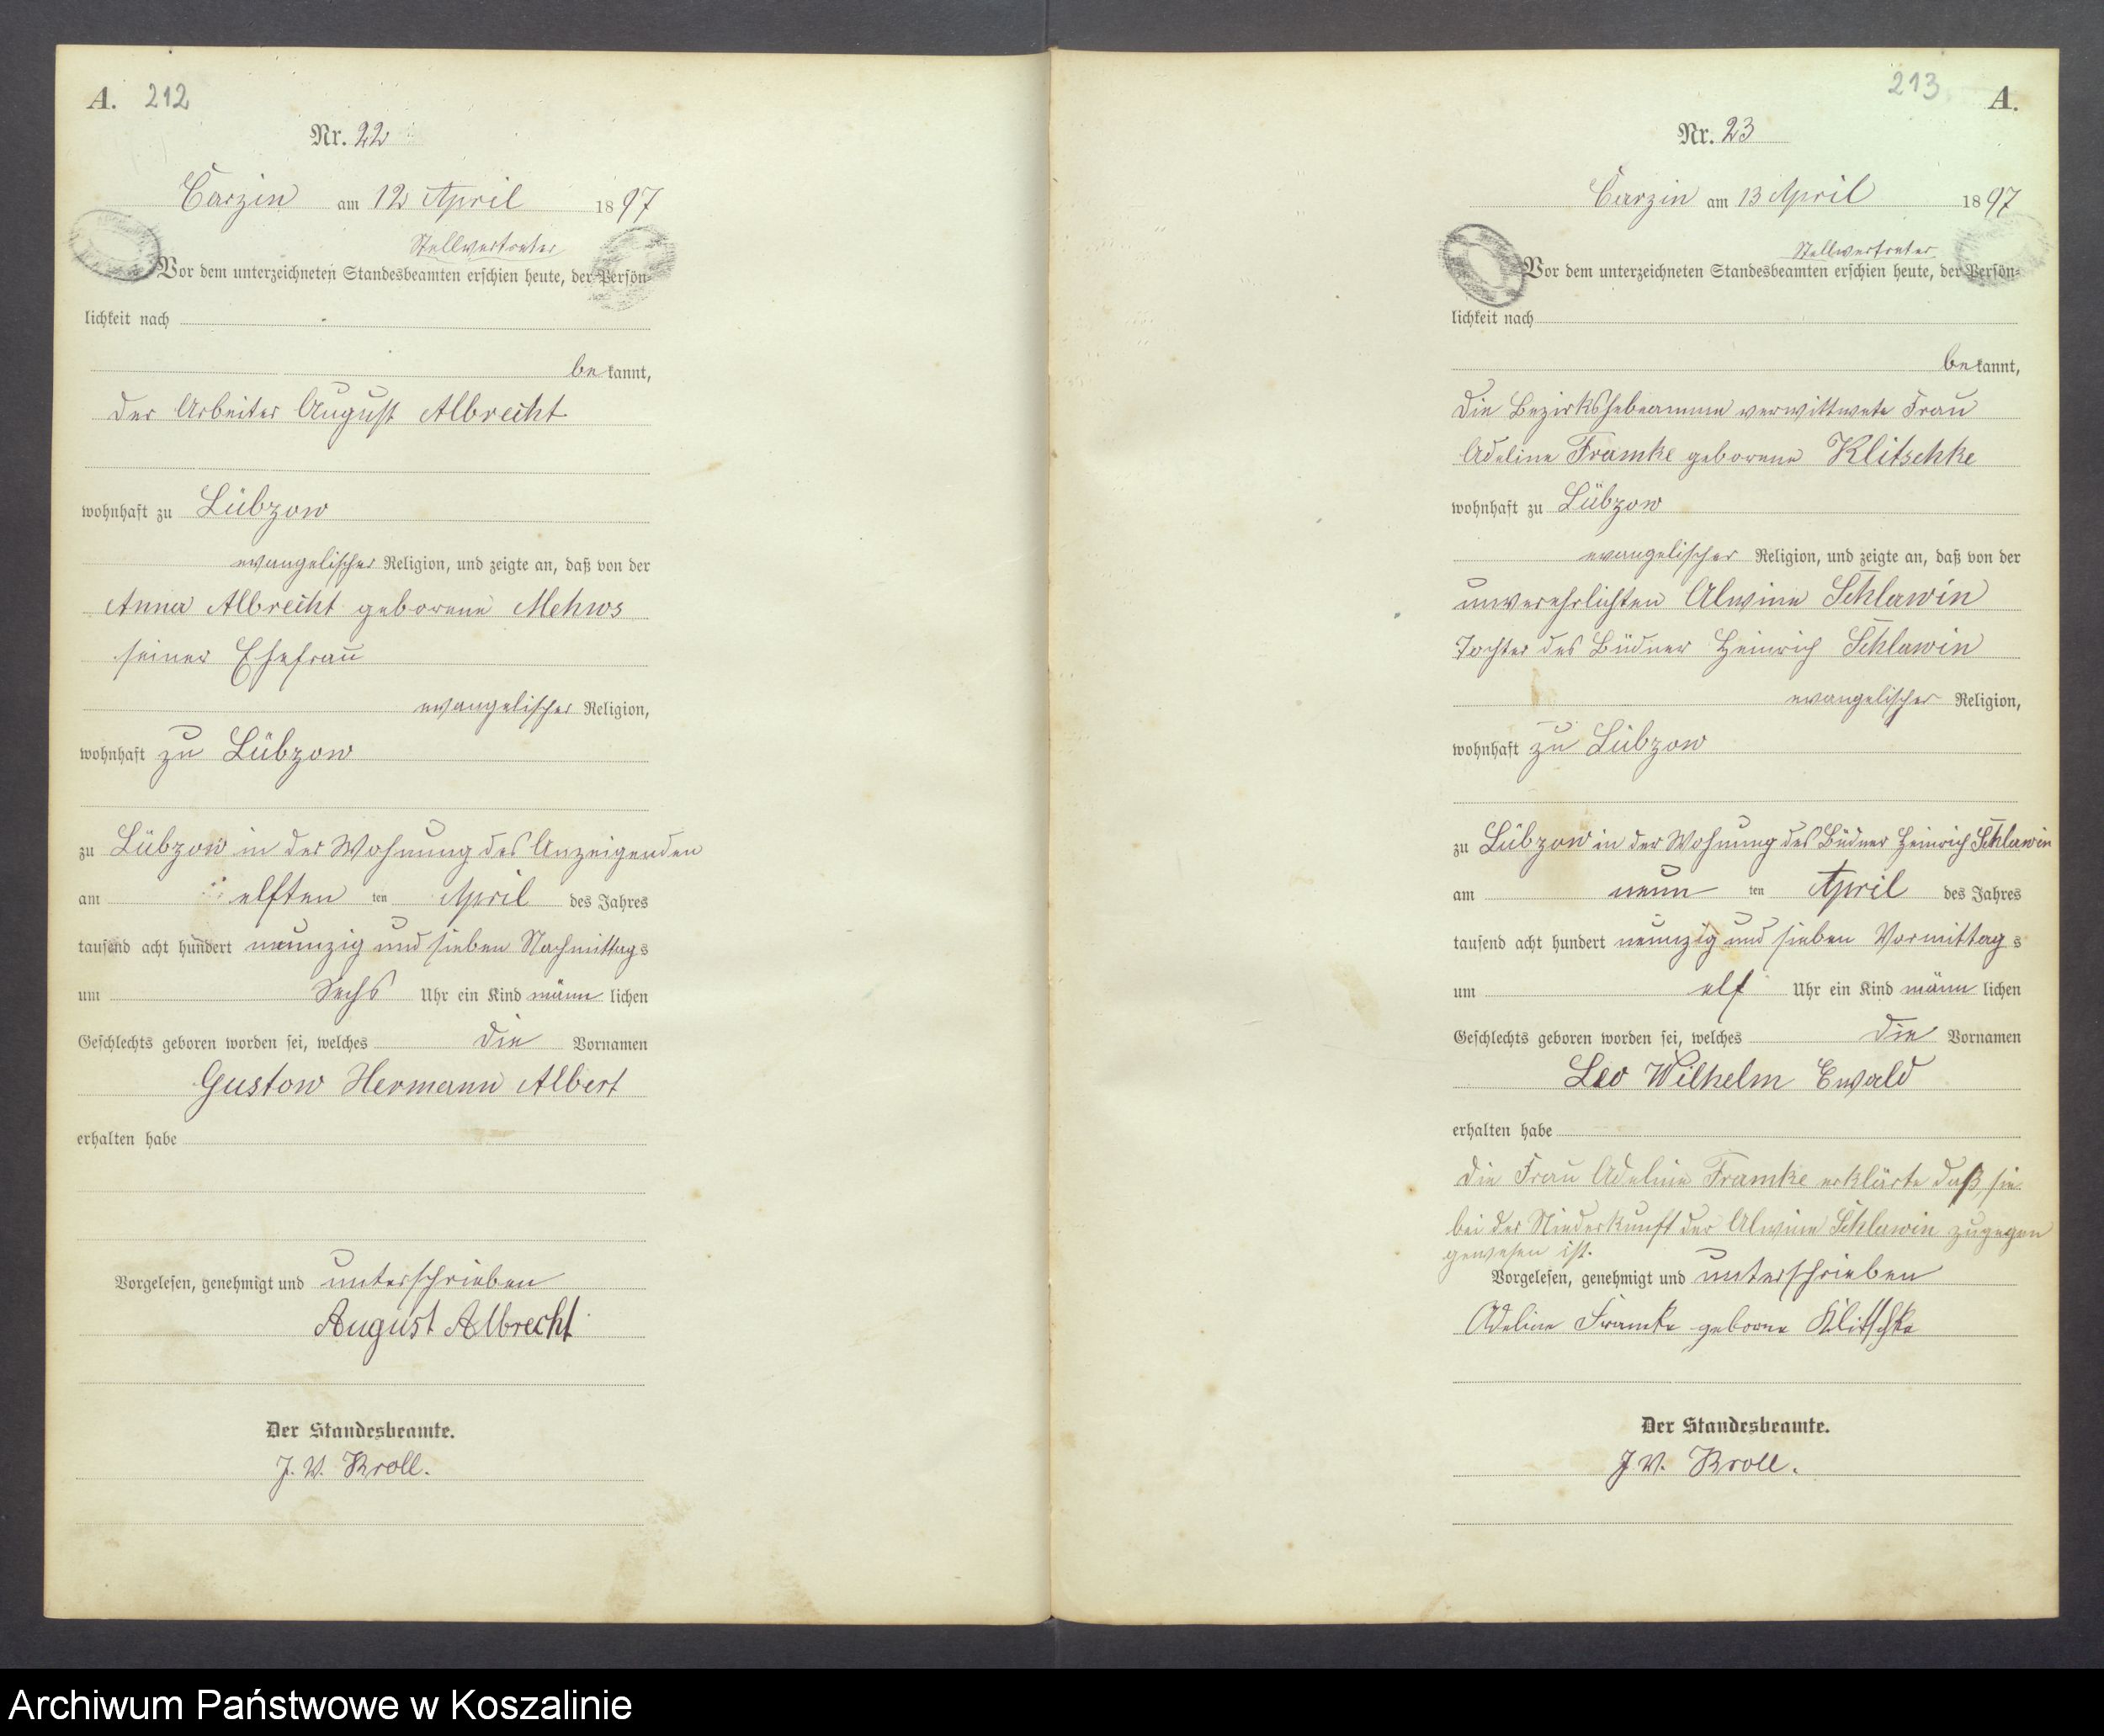 A. 212
Nr. 22
Carzin am 12 April 1897
Stellvertreter
Vor dem unterzeichneten Standesbeamten erschien heute, der Persön-
lichkeit nach
bekannt,
der Arbeiter August Albrecht
wohnhaft zu Lübzow
evangelischer Religion, und zeigte an, daß von der
Anna Albrecht geborene Mehws
seiner Ehefrau
evangelischer Religion,
wohnhaft zu Lübzow
zu Lübzow in der Wohnung des Anzeigenden
am elften ten April des Jahres
tausend acht hundert neunzig und sieben Nachmittags
um Sechs Uhr ein Kind männlichen
Geschlechts geboren worden sei, welches die Vornamen
Gustow Hermann Albert
erhalten habe
Vorgelesen, genehmigt und unterschrieben
August Albrecht
Der Standesbeamte.
J. V. Kroll.
213 A.
Nr. 23
Carzin am 13 April 1897
Stellvertreter
Vor dem unterzeichneten Standesbeamten erschien heute, der Persön-
lichkeit nach
bekannt,
die Bezirkshebeamme verwittwete Frau
Adeline Framke geborene Klitschke
wohnhaft zu Lübzow
evangelischer Religion, und zeigte an, daß von der
unverehelichten Alwine Schlawin
Tochter des Büdner Heinrich Schlawin
evangelischer Religion,
wohnhaft zu Lübzow
zu Lübzow in der Wohnung des Büdner Heinrich Schlawin
am neun ten April des Jahres
tausend acht hundert neunzig und sieben Vormittags
um elf Uhr ein Kind männlichen
Geschlechts geboren worden sei, welches die Vornamen
Leo Wilhelm Ewald
erhalten habe
die Frau Adeline Framke erklärte daß sie
bei der Niederkunft der Alwine Schlawin zugegen
gewesen ist.
Vorgelesen, genehmigt und unterschrieben
Adeline Framke geborne Klitschke
Der Standesbeamte.
J. V. Kroll.
Archiwum Państwowe w Koszalinie